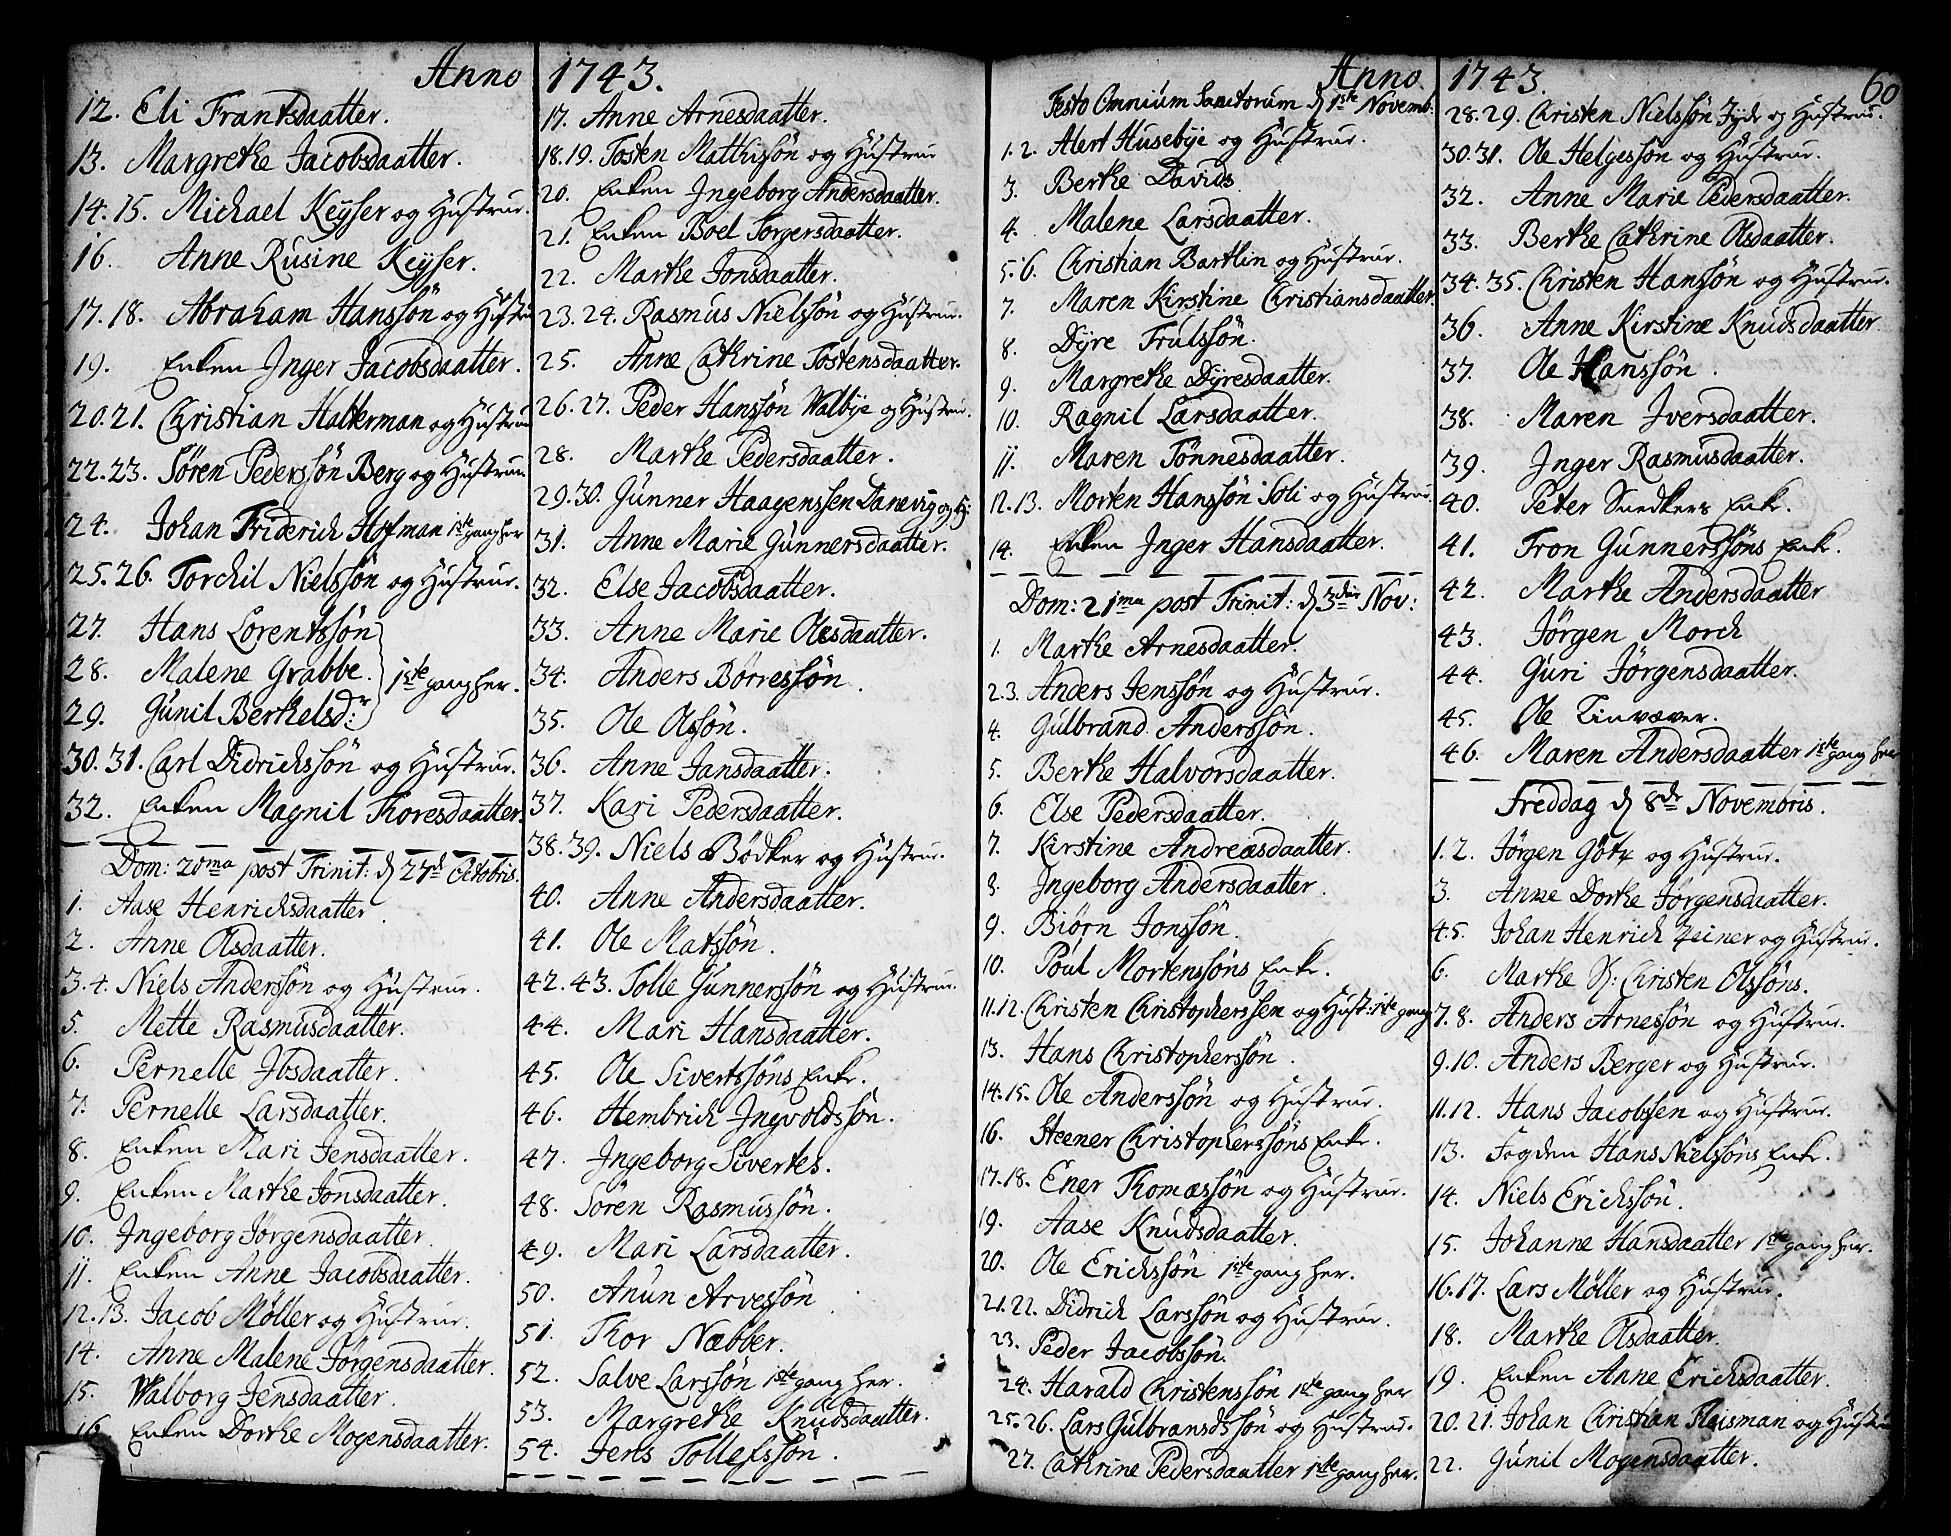 Anno 1743.
12. Eli Frantsdaatter.
13. Margrethe Jacobsdaatter.
14. 15. Michael Keÿser og Hustrue.
16. Anne Rusine Keÿser.
17. 18. Abraham Hanssön og Hustru
19. Enken Inger Jacobsdaatter.
20. 21. Christian Halterman og Hustru
22. 23. Sören Pederssön Berg og Hustrue
24. Johan Friderich Hofman 1ste gang her
25. 26. Torchil Nielssön og Hustrue.
27. Hans Lorentssön
28. Malene Grabbe. 1ste gang her.
29. Gunil Berthelsd:r
30. 31. Carl Didrichssön og Hustrue.
32. Enken Magnil Thoresdaatter.
Dom: 20ma post Trinit: d 27de Octobris.
1. Aase Henrichsdaatter.
2. Anne Olsdaatter.
3. 4. Niels Anderssön og Hustrue.
5. Mette Rasmusdaatter.
6. Pernelle Ibsdaatter.
7. Pernelle Larsdaatter.
8. Enken Mari Jensdaatter.
9. Enken Marthe Jonsdaatter.
10. Ingeborg Jörgensdaatter.
11. Enken Anne Jacobsdaatter.
12. 13. Jacob Möller og Hustrue.
14. Anne Malene Jörgensdaatter.
15. Walborg Jensdaatter.
16. Enken Dorthe Mogensdaatter.
17. Anne Arnesdaatter.
18. 19. Tosten Mathissön og Hustrue
20. Enken Ingeborg Andersdaatter.
21. Enken Boel Torgersdaatter.
22. Marthe Jonsdaatter.
23. 24. Rasmus Nielssön og Hustrue.
25. Anne Cathrine Tostensdaatter.
26. 27. Peder Hanssön Walbÿe og Hustrue.
28. Marthe Pedersdaatter.
29. 30. Gunner Haagenssen Danevig og H:
31. Anne Marie Gunnersdaatter.
32. Else Jacobsdaatter.
33. Anne Marie Olesdaatter.
34. Anders Börressön.
35. Ole Olssön.
36. Anne Jansdaatter.
37. Kari Pedersdaatter.
38. 39. Niels Bödker og Hustrue.
40. Anne Andersdaatter.
41. Ole Matssön.
42. 43. Tolle Gunnerssön og Hustrue.
44. Mari Hansdaatter.
45. Ole Sivertssöns Enke.
46. Hembrich Ingvoldssön.
47. Ingeborg Siverts.
48. Sören Rasmussön.
49. Mari Larsdaatter.
50. Anun Arvessön
51. Thor Næbber.
52. Salve Larssön 1ste gang her.
53. Margrethe Knudsdaatter.
54. Jens Tollefssön.
Anno 1743. 60
Festo Omnium Sanctorum d 1ste Novemb:
1. 2. Alert Husebÿe og Hustrue.
3. Berthe Davids
4. Malene Larsdaatter.
5. 6. Christian Bartlin og Hustrue.
7. Maren Kirstine Christiansdaatter.
8. Dÿre Trulssön.
9. Margrethe Dÿresdaatter.
10. Ragnil Larsdaatter.
11. Maren Tönnesdaatter.
12. 13. Morten Hanssön Soli og Hustrue
14. Enken Inger Hansdaatter.
Dom: 21ma post Trinit: d 3die Nov:
1. Marthe Arnesdaatter.
2. 3. Anders Jenssön og Hustrue.
4. Gulbrand Anderssön.
5. Berthe Halvorsdaatter.
6. Else Pedersdaatter.
7. Kirstine Andreasdaatter.
8. Ingeborg Andersdaatter.
9. Biörn Jonssön.
10. Poul Mortenssöns Enke.
11. 12. Christen Christopherssen og Hust: 1ste gang
13. Hans Christopherssön.
14. 15. Ole Anderssön og Hustrue.
16. Steener Christopherssöns Enke.
17. 18. Ener Thomassön og Hustrue.
19. Aase Knudsdaatter.
20. Ole Erichssön 1ste gang her.
21. 22. Didrich Larssön og Hustrue.
23. Peder Jacobssön.
24. Harald Christenssön 1ste gang her
25. 26. Lars Gulbrandssön og Hustrue.
27. Cathrine Pedersdaatter 1ste gang her.
28. 29. Christen Nielssön Jÿde og Hustrue.
30. 31. Ole Helgessön og Hustrue.
32. Anne Marie Pedersdaatter.
33. Berthe Cathrine Olsdaatter.
34. 35. Christen Hanssön og Hustrue.
36. Anne Kirstine Knudsdaatter
37. Ole Hanssön.
38. Maren Iversdaatter.
39. Inger Rasmusdaatter.
40. Peter Snedkers Enke.
41. Tron Gunnerssöns Enke.
42. Marthe Andersdaatter
43. Jörgen Morch
44. Guri Jörgensdaatter.
45. Ole Linvæver.
46. Maren Andersdaatter 1ste gang her
Freddag d 8de Novembris.
1. 2. Jörgen Götz og Hustrue.
3. Anne Dorthe Jörgensdaatter.
4. 5. Johan Henrich Zeiner og Hustrue.
6. Marthe S: Christen Olssöns.
7. 8. Anders Arnessön og Hustrue.
9. 10. Anders Berger og Hustrue.
11. 12. Hans Jacobssen og Hustrue.
13. Fogden Hans Nielssöns Enke.
14. Niels Erichssön.
15. Johanne Hansdaatter 1ste gang her.
16. 17. Lars Möller og Hustrue.
18. Marthe Olsdaatter.
19. Enken Anne Erichsdaatter.
20. 21. Johan Christian Fleisman og Hustrue
22. Gunil Mogensdaatter.